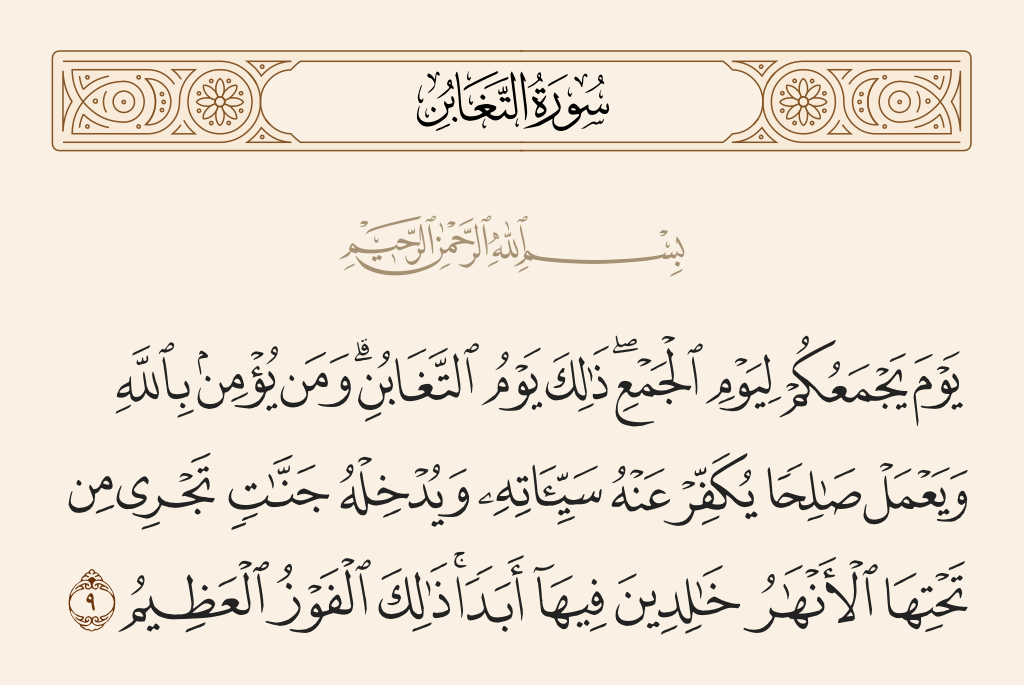 سُورَةُ التَّغَابُنِ
بِسْمِ ٱللَّهِ ٱلرَّحْمَٰنِ ٱلرَّحِيمِ
يَوْمَ يَجْمَعُكُمْ لِيَوْمِ ٱلْجَمْعِ ۖ ذَٰلِكَ يَوْمُ ٱلتَّغَابُنِ ۗ وَمَن يُؤْمِنۢ بِٱللَّهِ
وَيَعْمَلْ صَٰلِحًا يُكَفِّرْ عَنْهُ سَيِّـَٔاتِهِۦ وَيُدْخِلْهُ جَنَّٰتٍ تَجْرِى مِن
تَحْتِهَا ٱلْأَنْهَٰرُ خَٰلِدِينَ فِيهَآ أَبَدًا ۚ ذَٰلِكَ ٱلْفَوْزُ ٱلْعَظِيمُ ٩